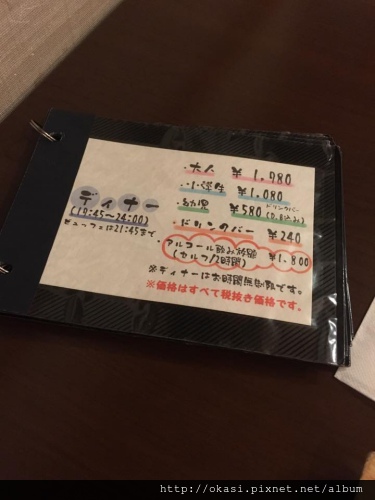 ディナー
(17:45~24:00)
ビュッフェは21:45まで
・大人 ¥1,980
・小学生 ¥1,080
・幼児 ¥580 ドリンクバー(D.B込み)
・ドリンクバー ¥240
・アルコール飲み放題 ¥1,800
(セルフ/2時間)
※ディナーはお時間無制限です。
※価格はすべて税抜き価格です。
http://okasi.pixnet.net/album